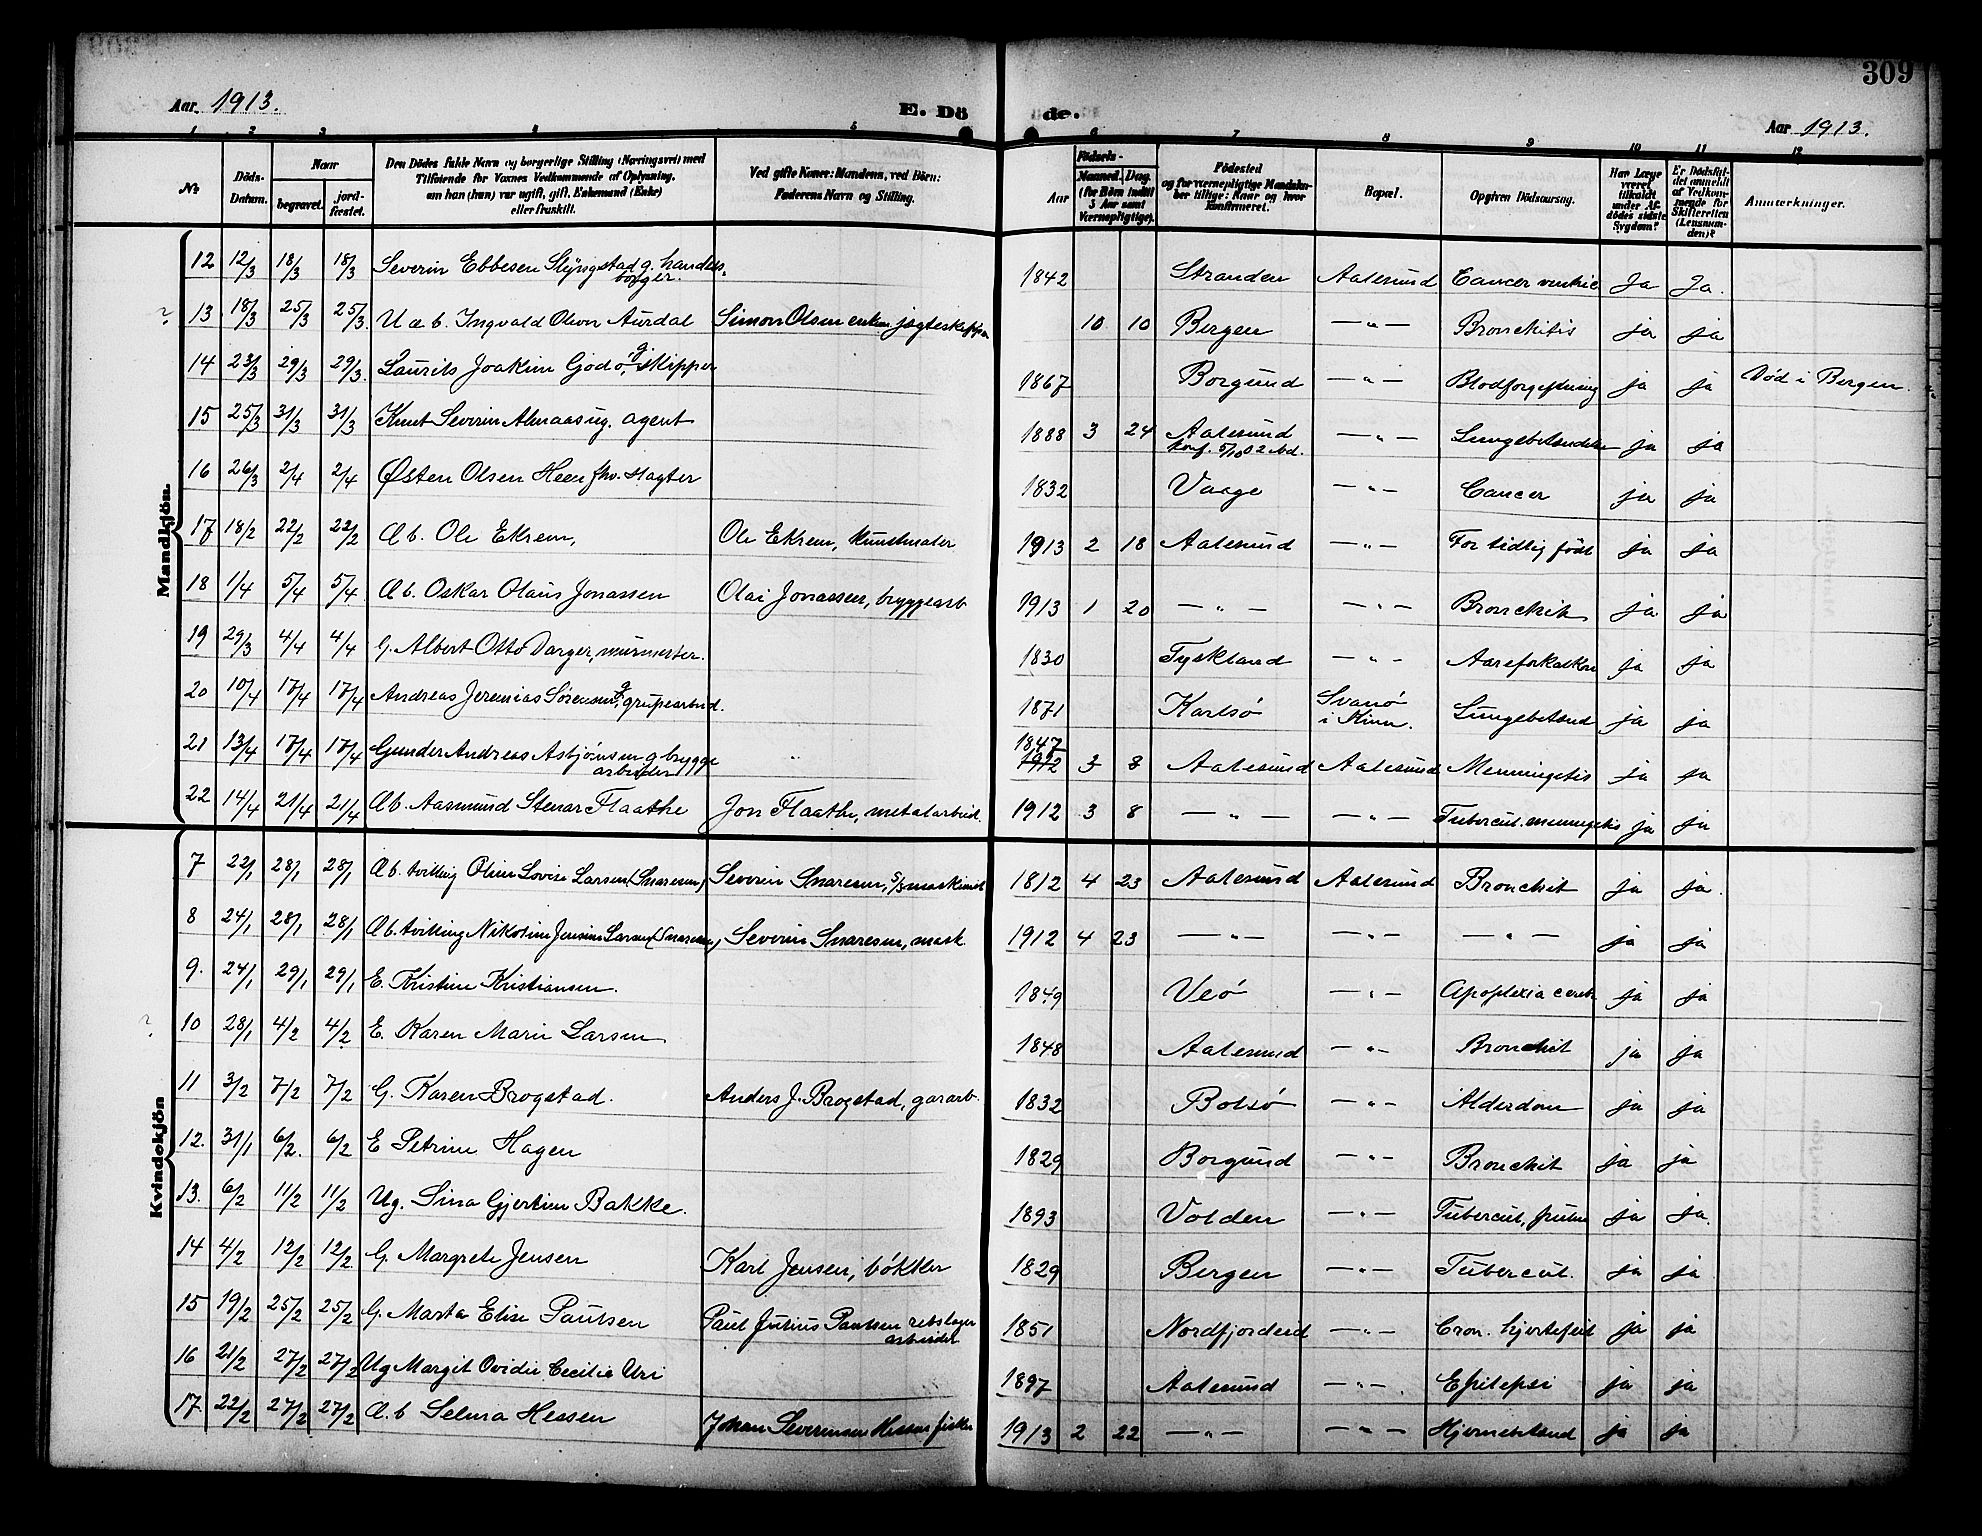 309
Aar 1913. E. Dö de. Aar 1913.
1 2 3 4 5 6 7 8 9 10 11 12
No
Döds-Datum.
Naar
begravet. jord-fæstet.
Den Dödes fulde Navn og borgerlige Stilling (Næringsvei) med
Tilföiende for Voxnes Vedkommende af Oplysning,
om han (hun) var ugift, gift, Enkemand (Enke)
eller fraskilt.
Ved gifte Koner: Mandens, ved Börn:
Faderens Navn og Stilling.
Födsels-
Aar Maaned. Dag.
(for Börn indtil
5 Aar samt
Værnepligtige).
Födested
og for værnepligtige Mandskaber tillige: Naar og hvor
konfirmeret.
Bopæl.
Opgiven Dödsaarsag.
Har Læge
været
tilkaldt
under Afdödes sidste
Sygdom?
Er Dödsfaldet anmeldt
af Vedkommende for
Skifteretten
(Lensmanden)?
Anmærkninger.
Mandkjön.
12 12/3 18/3 18/3 Severin Ebbesen Slyngstad g. handels- borger. 1842 Stranden Aalesund Cancer ventric Ja Ja.
? 13 18/3 25/3 25/3 U æ b. Ingvald Oliver Aurdal Simon Olsen enkem jægteskipper 10 10 Bergen — " — Bronchitis ja ja
14 23/3 29/3 29/3. Laurits Joakim Godø, g. skipper 1867 Borgund — " — Blodforgiftning ja ja Død i Bergen.
15 25/3 31/3 31/3 Knut Severin Almaas ug. agent 1888 3 24 Aalesund — " — Lungebetændelse ja ja
konf. 5/10 02 ibd.
16 26/3 2/4 2/4 Østen Olsen Heen fhv. slagter 1832 Vaage — " — Cancer ja ja
17 18/2 22/2 22/2 Æ b. Ole Ekrem, Ole Ekrem, kunstmaler 1913 2 18 Aalesund — " — For tidlig født ja ja
18 1/4 5/4 5/4 Æ b. Oskar Olaus Jonassen Olai Jonassen, bryggearb 1913 1 20 — " — — " — Bronchit ja ja
19 29/3 4/4 4/4 G. Albert Otto Darger, murmester. 1830 Tyskland — " — Aareforkalkn ja ja
20 10/4 17/4 17/4 Andreas Jeremias Sørensen, g. grubearbeid. 1871 Karlsø Svanø i Kinn. Lungebetænd ja ja
21 13/4 17/4 17/4 Gunder Andreas Asbjønsen g brygge arbeider " 1847 1912 3 8 Aalesund Aalesund Menningetis ja ja
22 14/4 21/4 21/4 Æ b. Aasmund Stenar Flaathe Jon Flaathe, metalarbeid. 1912 3 8 — " — — " — Tubercul. menningetis ja ja
Kvindekjön
7 22/1 28/1 28/1 Æ b. tvilling Oline Lovise Larsen (Snaresen) Severin Snaresen, s/s maskinist 1812 4 23 Aalesund Aalesund Bronchit ja ja.
8 24/1 28/1 28/1 Æ b. tvilling Nikoline Jensine Larsen (Snaresen) Severin Snaresen, mask. 1912 4 23 — " — — " — — " — ja ja
9. 24/1 29/1 29/1 E. Kristine Kristiansen. 1849 Veø — " — Apoplexia cerebr ja ja
? 10 28/1 4/2 4/2 E. Karen Marie Larsen 1848 Aalesund — " — Bronchit ja ja
11 3/2 7/2 7/2 G. Karen Brogstad. Anders J. Brogstad, gararb. 1832 Bolsø — " — Alderdom ja ja
12. 31/1 6/2. 6/2 E Petrine Hagen 1829 Borgund — " — Bronchit ja ja
13. 6/2 11/2 11/2 Ug. Sina Gjertine Bakke. 1893 Volden — " — Tubercul, pulm ja ja.
14 4/2 12/2 12/2 G. Margrete Jensen Karl Jensen, bøkker 1829 Bergen — " — Tubercul. ja ja
15 19/2 25/2 25/2 G. Marta Elise Paulsen Paul Julius Paulsen rebslager arbeider 1851 Nordfjordeid — " — Cron. hjertefeil ja ja
16 21/2 27/2 27/2 Ug Margit Ovidie Cecilie Uri 1897 Aalesund — " — Epilepsi ja ja
17. 22/2 27/2 27/2 Æ. b Selma Hessen Johan Severinsen Hessen fisker 1913 2 22 — " — — " — Hjernebetænd ja ja